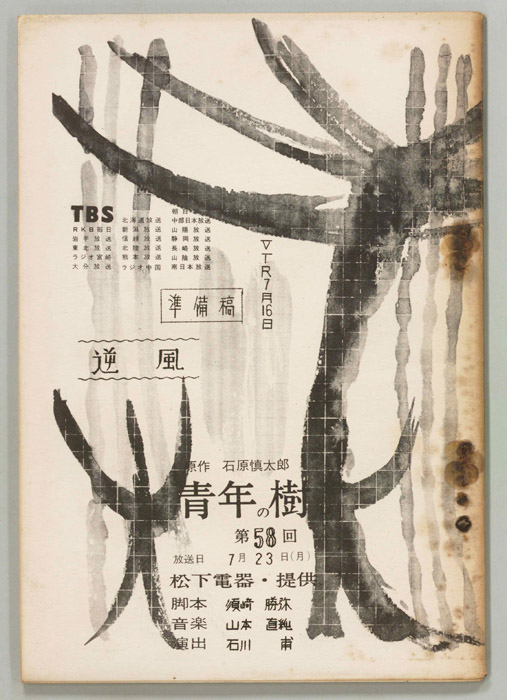 TBS
朝日放送
北海道放送 中部日本放送
RKB毎日 新潟放送 山陽放送
岩手放送 信越放送 静岡放送
東北放送 北陸放送 長崎放送
ラジオ宮崎 熊本放送 山陰放送
大分放送 ラジオ中国 南日本放送
VTR7月16日
準備稿
逆風
原作 石原慎太郎
青年の樹
第58回
放送日 7月23日(月)
松下電器・提供
脚本 須崎勝弥
音楽 山本直純
演出 石川甫